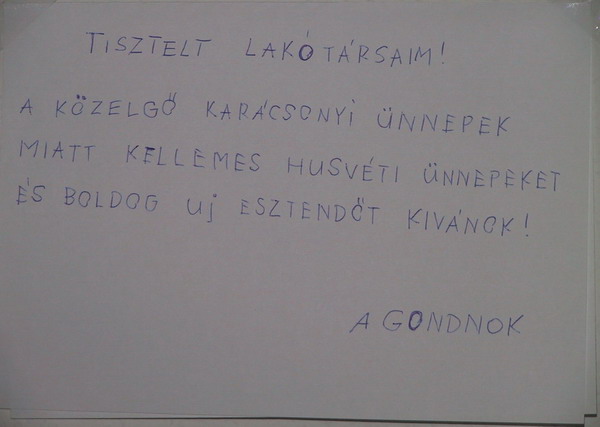 TISZTELT LAKÓTÁRSAIM!
A KÖZELGŐ KARÁCSONYI ÜNNEPEK
MIATT KELLEMES HUSVÉTI ÜNNEPEKET
ÉS BOLDOG Uj ESZTENDŐT KIVÁNOK!
A GONDNOK